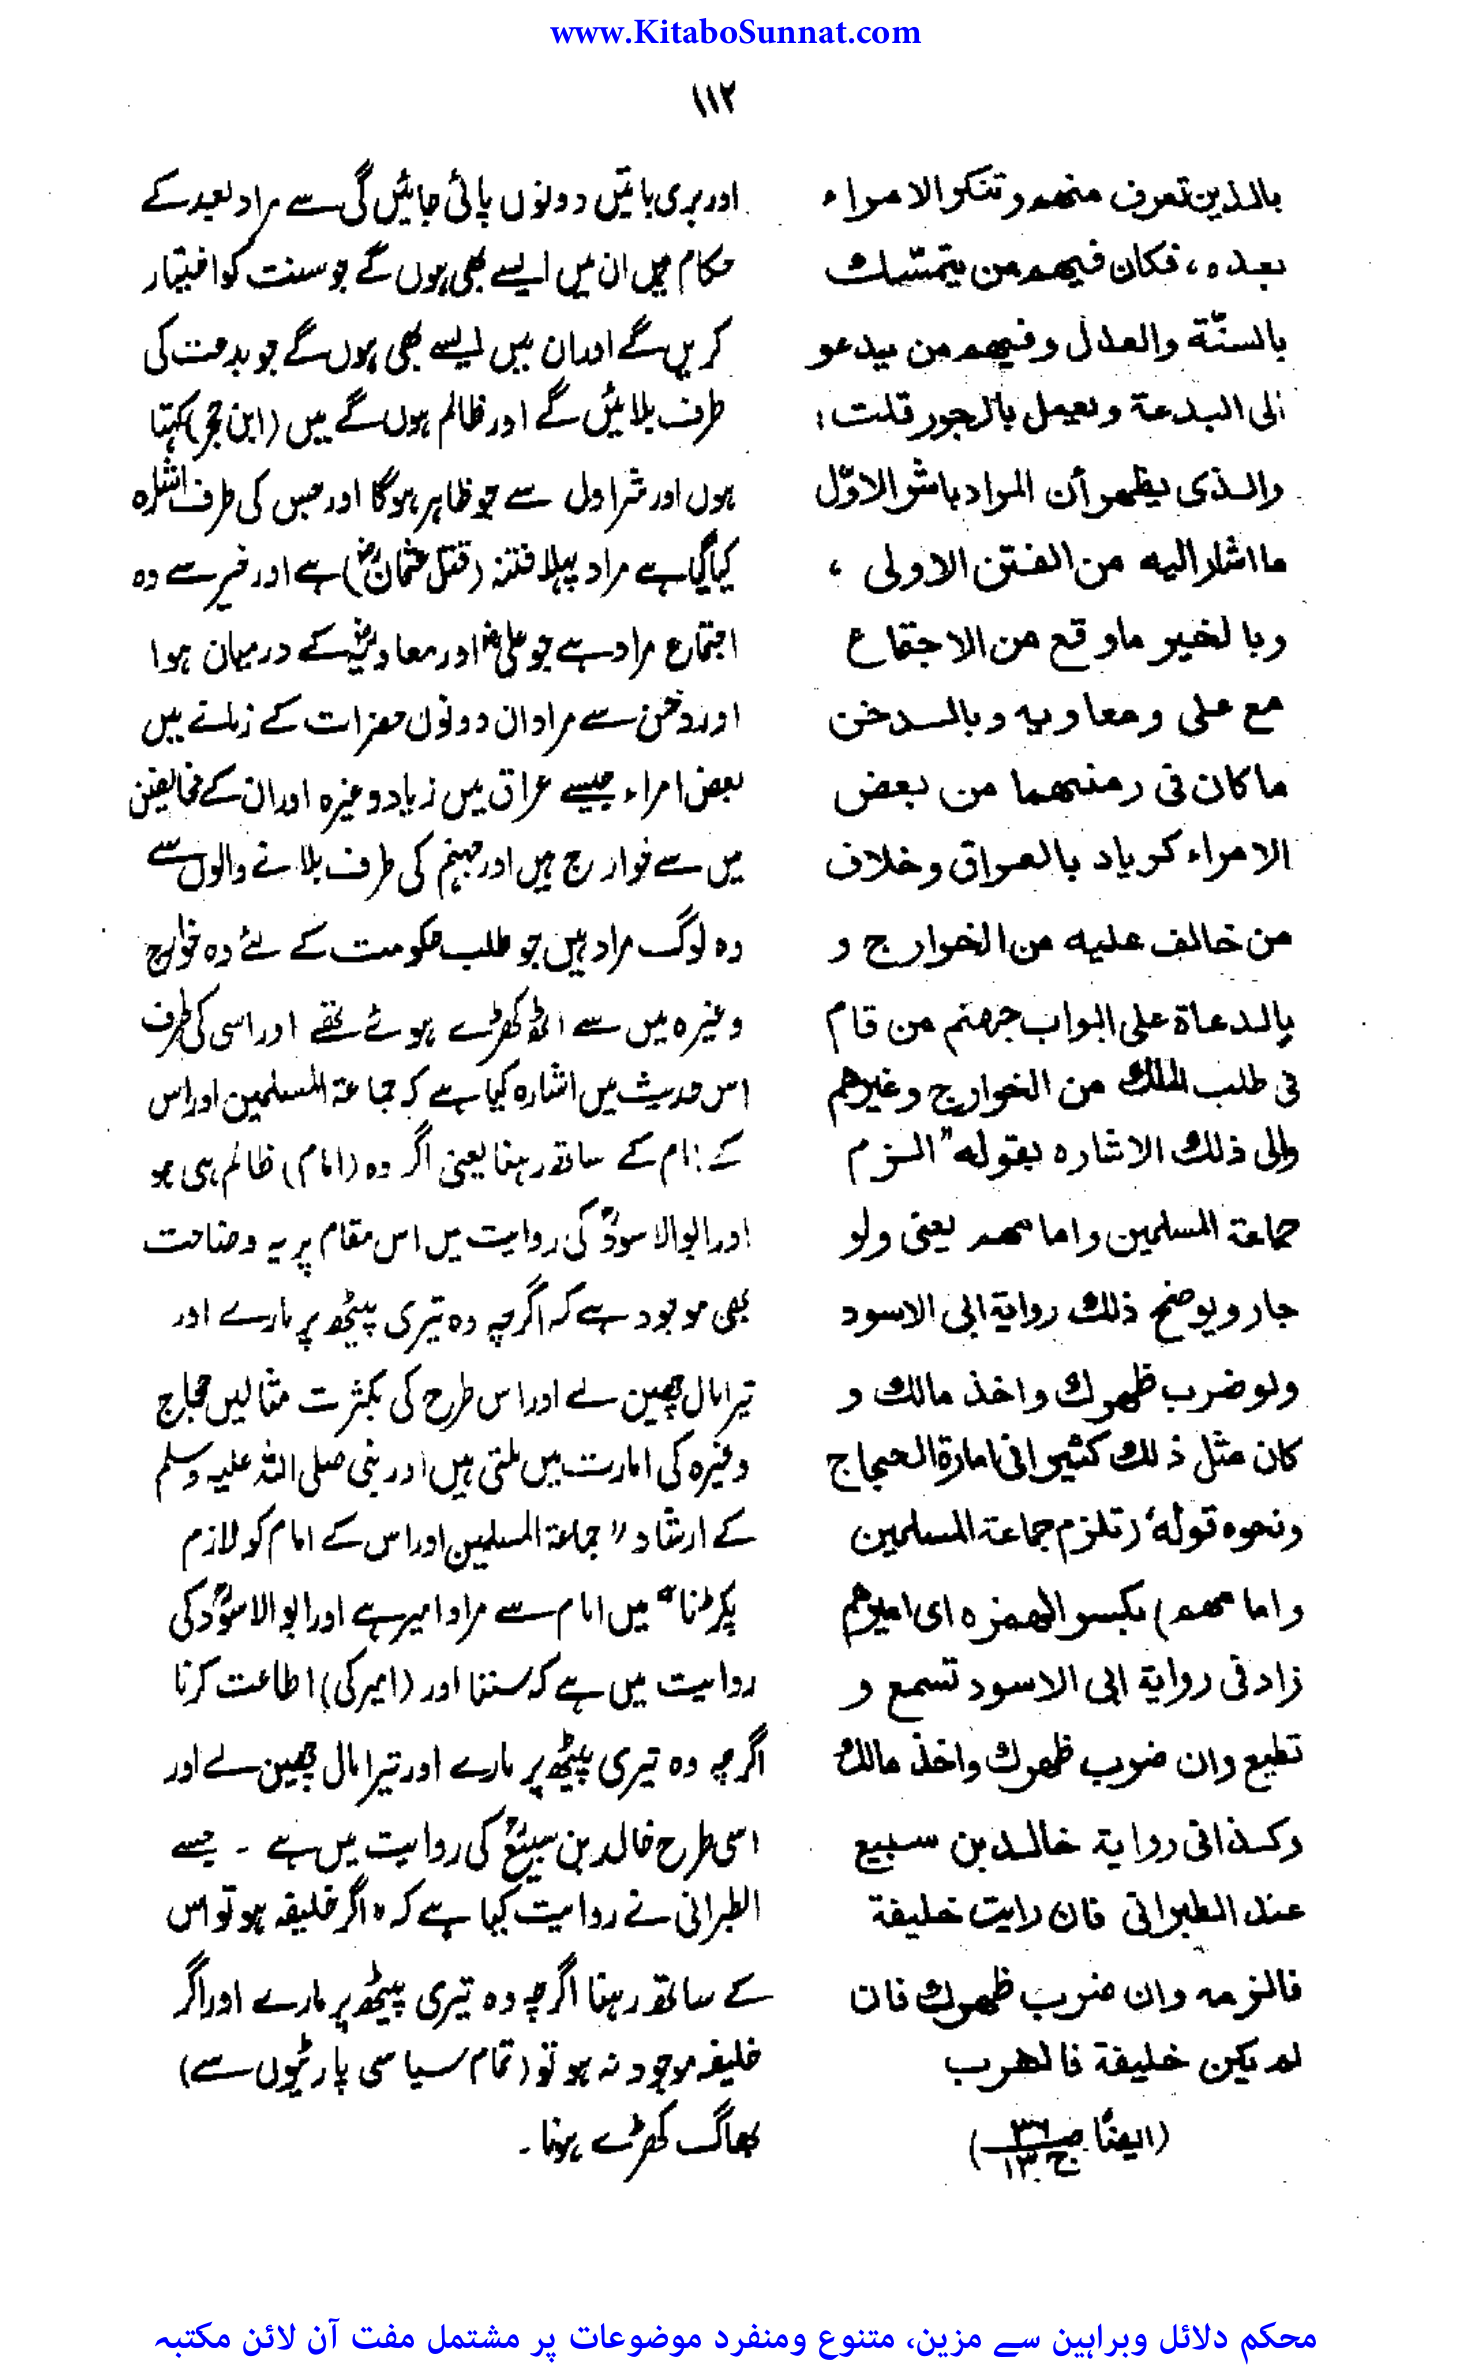 www.KitaboSunnat.com
۱۱۲
بالذین تعرف منهم وتنکر الامراء
بعده، فکان فیهم من یتمسّك
بالسنّة والعدل وفیهم من یدعو
الی البدعة ویعمل بالجور قلت:
والذی یظهر أن المراد باشر الاوّل
ما اشار الیه من الفتن الاولی ،
وبالخیر ما وقع من الاجتماع
مع علی ومعاویه وبالدخن
ما کان فی زمنهما من بعض
الامراء کزیاد بالعراق وخلاف
من خالف علیه من الخوارج و
بالدعاة علی ابواب جهنم من قام
فی طلب الملك من الخوارج وغیرهم
والی ذلك الاشاره بقوله "الزم
جماعة المسلمین وامامهم یعنی ولو
جار ویوضح ذلك روایة ابی الاسود
ولو ضرب ظهرك واخذ مالك و
کان مثل ذلك کثیرا فی امارة الحجاج
ونحوه قوله (تلزم جماعة المسلمین
وامامهم) بکسر الهمزه ای امیرهم
زاد فی روایة ابی الاسود تسمع و
تطیع وان ضرب ظهرك واخذ مالك
وکذا فی روایة خالد بن سبیع
عند الطبرانی فان رایت خلیفة
فالزمه وان ضرب ظهرك فان
لم یکن خلیفة فالهرب
(ایضًا ص ۳۶ ج ۱۳)
اور بری باتیں دونوں پائی جائیں گی سے مراد بعد کے
حکام ہیں ان میں ایسے بھی ہوں گے جو سنت کو اختیار
کریں گے اور ان میں ایسے بھی ہوں گے جو بدعت کی
طرف بلائیں گے اور ظالم ہوں گے میں (ابن حجر) کہتا
ہوں اور شر اول سے جو ظاہر ہوگا اور جس کی طرف اشارہ
کیا گیا ہے مراد پہلا فتنہ (قتل عثمانؓ) ہے اور خیر سے وہ
اجتماع مراد ہے جو علیؓ اور معاویہؓ کے درمیان ہوا
اور دخن سے مراد ان دونوں حضرات کے زمانے میں
بعض امراء جیسے عراق میں زیاد وغیرہ اور ان کے مخالفین
میں سے خوارج ہیں اور جہنم کی طرف بلانے والوں سے
وہ لوگ مراد ہیں جو طلب حکومت کے لئے وہ خوارج
وغیرہ میں سے اٹھ کھڑے ہوئے تھے اور اسی کی طرف
اس حدیث میں اشارہ کیا ہے کہ جماعة المسلمین اور اس
کے امام کے ساتھ رہنا یعنی اگر وہ (امام) ظالم ہی ہو
اور ابوالاسودؒ کی روایت میں اس مقام پر یہ وضاحت
بھی موجود ہے کہ اگرچہ وہ تیری پیٹھ پر مارے اور
تیرا مال چھین لے اور اس طرح کی بکثرت مثالیں حجاج
وغیرہ کی امارت میں ملتی ہیں اور نبی صلی اللہ علیہ وسلم
کے ارشاد "جماعة المسلمین اور اس کے امام کو لازم
پکڑنا" میں امام سے مراد امیر ہے اور ابوالاسودؒ کی
روایت میں ہے کہ سننا اور (امیر کی) اطاعت کرنا
اگرچہ وہ تیری پیٹھ پر مارے اور تیرا مال چھین لے اور
اسی طرح خالد بن سبیعؒ کی روایت میں ہے ۔ جسے
الطبرانی نے روایت کیا ہے کہ "اگر خلیفہ ہو تو اس
کے ساتھ رہنا اگرچہ وہ تیری پیٹھ پر مارے اور اگر
خلیفہ موجود نہ ہو تو (تمام سیاسی پارٹیوں سے)
بھاگ کھڑے ہونا۔
محکم دلائل وبراہین سے مزین، متنوع ومنفرد موضوعات پر مشتمل مفت آن لائن مکتبہ